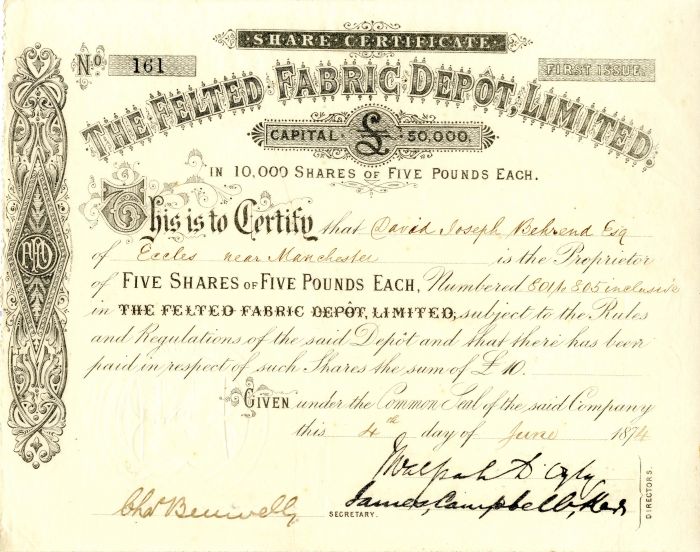 SHARE CERTIFICATE
No. 161
FIRST ISSUE
THE FELTED FABRIC DEPÔT, LIMITED.
CAPITAL £ 50,000.
IN 10,000 SHARES OF FIVE POUNDS EACH.
This is to Certify that David Joseph Behrend Esq
of Eccles near Manchester is the Proprietor
of FIVE SHARES OF FIVE POUNDS EACH, Numbered 801 to 805 inclusive
in THE FELTED FABRIC DEPÔT, LIMITED, subject to the Rules
and Regulations of the said Depôt and that there has been
paid in respect of such Shares the sum of £10.
GIVEN under the Common Seal of the said Company
this 4th day of June 1874
James Campbell
Chas
SECRETARY.
DIRECTORS.